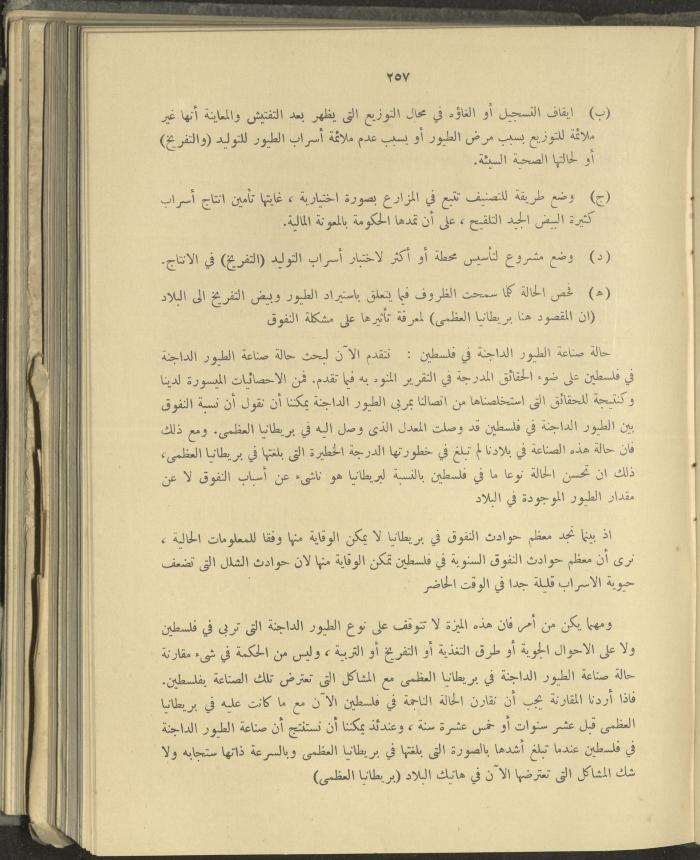 ٢٥٧
(ب) ايقاف التسجيل أو الغاؤه في محال التوزيع التى يظهر بعد التفتيش والمعاينة أنها غير
ملائمة للتوزيع بسبب مرض الطيور أو بسبب عدم ملائمة أسراب الطيور للتوليد (والتفريخ)
أو لحالتها الصحية السيئة.
(ج) وضع طريقة للتصنيف تتبع في المزارع بصورة اختيارية ، غايتها تأمين انتاج أسراب
كثيرة البيض الجيد التلقيح ، على أن تمدها الحكومة بالمعونة المالية.
(د) وضع مشروع لتأسيس محطة أو أكثر لاختبار أسراب التوليد (التفريخ) في الانتاج.
(ه) فحص الحالة كلما سمحت الظروف فيما يتعلق باستيراد الطيور وبيض التفريخ الى البلاد
(ان المقصود هنا بريطانيا العظمى) لمعرفة تأثيرها على مشكلة النفوق
حالة صناعة الطيور الداجنة في فلسطين : نتقدم الآن لبحث حالة صناعة الطيور الداجنة
في فلسطين على ضوء الحقائق المدرجة في التقرير المنوه به فيما تقدم. فمن الاحصائيات الميسورة لدينا
وكنتيجة للحقائق التى استخلصناها من اتصالنا بمربى الطيور الداجنة يمكننا أن نقول أن نسبة النفوق
بين الطيور الداجنة في فلسطين قد وصلت المعدل الذى وصل اليه في بريطانيا العظمى. ومع ذلك
فان حالة هذه الصناعة في بلادنا لم تبلغ في خطورتها الدرجة الخطيرة التى بلغتها في بريطانيا العظمى،
ذلك ان تحسن الحالة نوعا ما في فلسطين بالنسبة لبريطانيا هو ناشىء عن أسباب النفوق لا عن
مقدار الطيور الموجودة في البلاد
اذ بينما نجد معظم حوادث النفوق في بريطانيا لا يمكن الوقاية منها وفقا للمعلومات الحالية ،
نرى أن معظم حوادث النفوق السنوية في فلسطين تمكن الوقاية منها لان حوادث الشلل التى تضعف
حيوية الاسراب قليلة جدا في الوقت الحاضر
ومهما يكن من أمر فان هذه الميزة لا تتوقف على نوع الطيور الداجنة التى تربى في فلسطين
ولا على الاحوال الجوية أو طرق التغذية أو التفريخ أو التربية ، وليس من الحكمة في شىء مقارنة
حالة صناعة الطيور الداجنة في بريطانيا العظمى مع المشاكل التى تعترض تلك الصناعة بفلسطين.
فاذا أردنا المقارنة يجب أن نقارن الحالة الناجمة في فلسطين الآن مع ما كانت عليه في بريطانيا
العظمى قبل عشر سنوات أو خمس عشرة سنة ، وعندئذ يمكننا أن نستنتج أن صناعة الطيور الداجنة
في فلسطين عندما تبلغ أشدها بالصورة التى بلغتها في بريطانيا العظمى وبالسرعة ذاتها ستجابه ولا
شك المشاكل التى تعترضها الآن في هاتيك البلاد (بريطانيا العظمى)